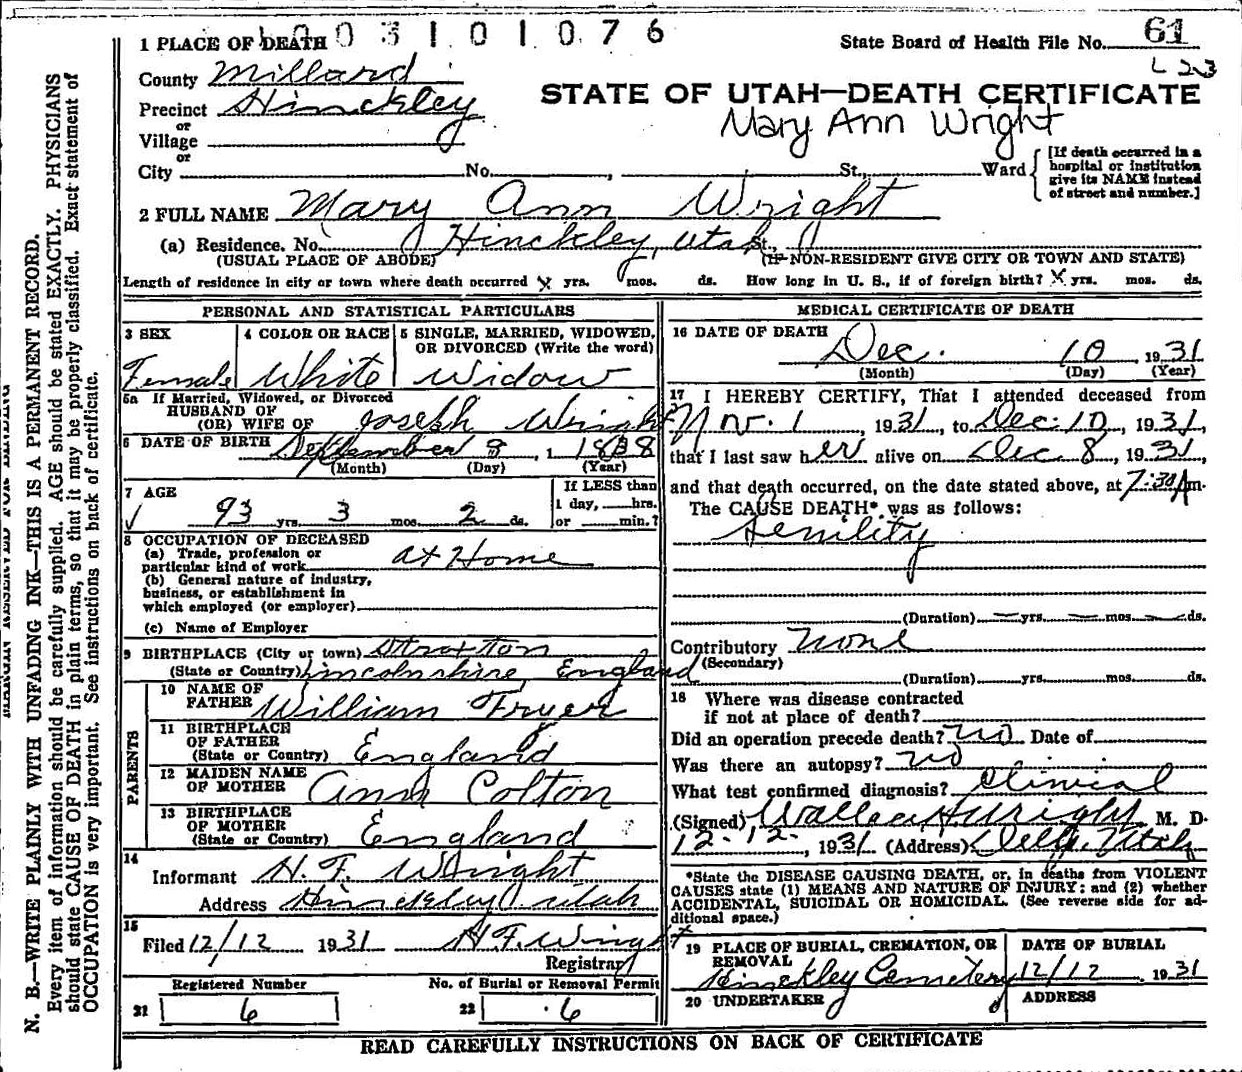 1 PLACE OF DEATH 0 0 3 1 0 1 0 7 6
State Board of Health File No. 61
L 23
County Millard
Precinct Hinckley
or
Village
or
City No. , St., Ward
STATE OF UTAH—DEATH CERTIFICATE
Mary Ann Wright
[If death occurred in a
hospital or institution
give its NAME instead
of street and number.]
2 FULL NAME Mary Ann Wright
(a) Residence. No. Hinckley, Utah St.,
(USUAL PLACE OF ABODE) (IF NON-RESIDENT GIVE CITY OR TOWN AND STATE)
Length of residence in city or town where death occurred X yrs. mos. ds. How long in U. S., if of foreign birth? X yrs. mos. ds.
PERSONAL AND STATISTICAL PARTICULARS
3 SEX 4 COLOR OR RACE 5 SINGLE, MARRIED, WIDOWED,
OR DIVORCED (Write the word)
Female White Widow
5a If Married, Widowed, or Divorced
HUSBAND OF
(OR) WIFE OF Joseph Wright
6 DATE OF BIRTH September 8, 1838
(Month) (Day) (Year)
7 AGE If LESS than
1 day, hrs.
93 yrs. 3 mos. 2 ds. or min.?
8 OCCUPATION OF DECEASED
(a) Trade, profession or
particular kind of work at Home
(b) General nature of industry,
business, or establishment in
which employed (or employer)
(c) Name of Employer
9 BIRTHPLACE (City or town) Straxton
(State or Country) Lincolnshire, England
PARENTS
10 NAME OF
FATHER William Fryer
11 BIRTHPLACE
OF FATHER
(State or Country) England
12 MAIDEN NAME
OF MOTHER Ann Colton
13 BIRTHPLACE
OF MOTHER
(State or Country) England
14
Informant H. F. Wright
Address Hinckley Utah
15
Filed 12/12 1931 H F. Wright
Registrar
Registered Number No. of Burial or Removal Permit
21 6 22 6
MEDICAL CERTIFICATE OF DEATH
16 DATE OF DEATH
Dec. 10, 1931
(Month) (Day) (Year)
17 I HEREBY CERTIFY, That I attended deceased from
Nov. 1, 1931, to Dec. 10, 1931,
that I last saw her alive on Dec. 8, 1931,
and that death occurred, on the date stated above, at 7:30 Am.
The CAUSE DEATH* was as follows:
Senility
(Duration) yrs. mos. ds.
Contributory None
(Secondary)
(Duration) yrs. mos. ds.
18 Where was disease contracted
if not at place of death?
Did an operation precede death? no Date of
Was there an autopsy? no
What test confirmed diagnosis? Clinical
(Signed) Wallace H Wright M. D.
12-12-, 1931 (Address) Delta, Utah
*State the DISEASE CAUSING DEATH, or, in deaths from VIOLENT
CAUSES state (1) MEANS AND NATURE OF INJURY: and (2) whether
ACCIDENTAL, SUICIDAL OR HOMICIDAL. (See reverse side for ad-
ditional space.)
19 PLACE OF BURIAL, CREMATION, OR
REMOVAL
Hinckley Cemetery
DATE OF BURIAL
12/12, 1931
20 UNDERTAKER ADDRESS
READ CAREFULLY INSTRUCTIONS ON BACK OF CERTIFICATE
N. B.—WRITE PLAINLY WITH UNFADING INK—THIS IS A PERMANENT RECORD.
Every item of information should be carefully supplied. AGE should be stated EXACTLY. PHYSICIANS
should state CAUSE OF DEATH in plain terms, so that it may be properly classified. Exact statement of
OCCUPATION is very important. See instructions on back of certificate.